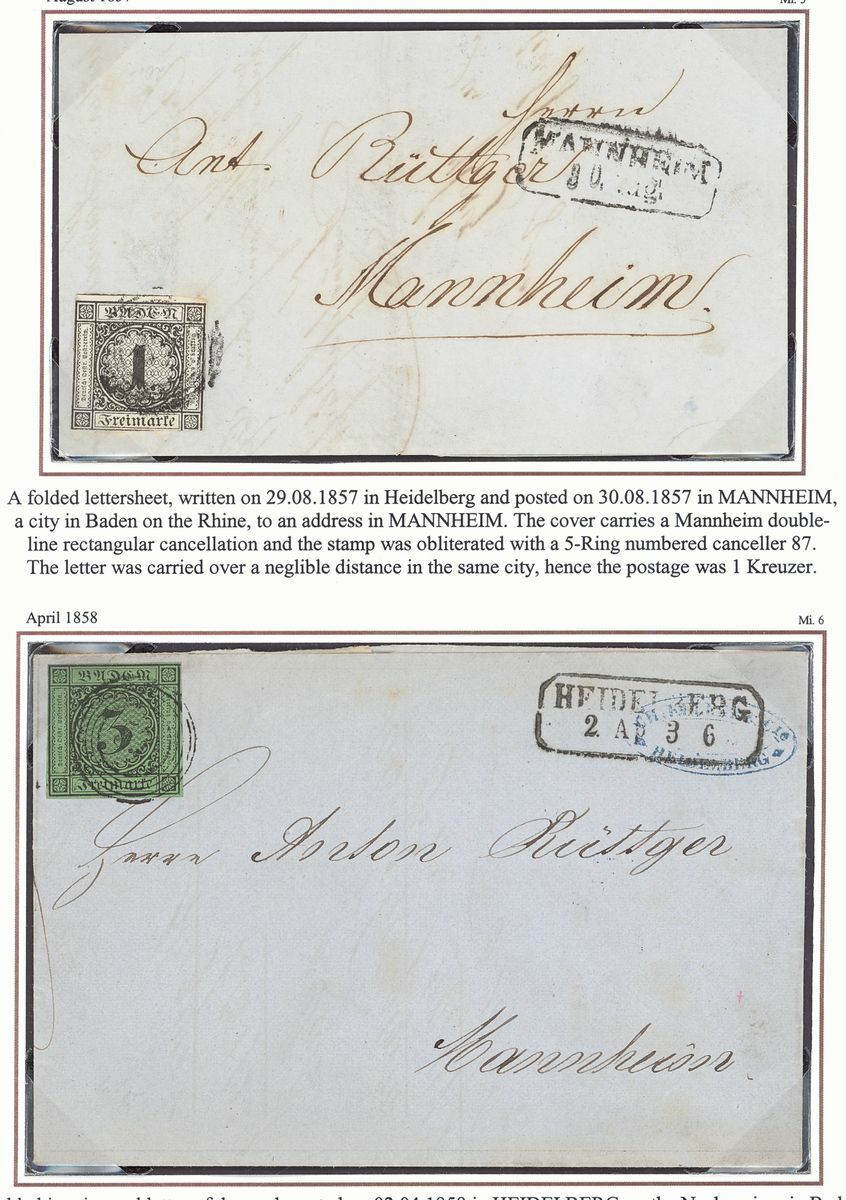 August 1857
Mi. 5
Herrn
Ant. Rüttger
MANNHEIM
30. Aug.
Mannheim.
BADEN
1
Freimarke
A folded lettersheet, written on 29.08.1857 in Heidelberg and posted on 30.08.1857 in MANNHEIM,
a city in Baden on the Rhine, to an address in MANNHEIM. The cover carries a Mannheim double-
line rectangular cancellation and the stamp was obliterated with a 5-Ring numbered canceller 87.
The letter was carried over a neglible distance in the same city, hence the postage was 1 Kreuzer.
April 1858
Mi. 6
BADEN
3
Freimarke
HEIDELBERG
2 Ap 3 6
HEIDELBERG
Herrn Anton Rüttger
Mannheim
02.04.1858 in HEIDELBERG